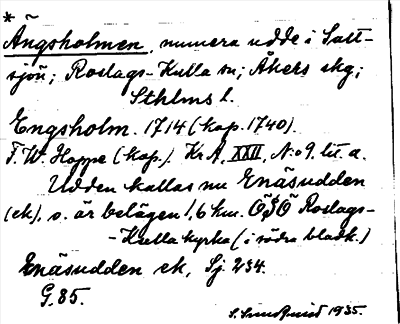 * Ängsholmen, numera udde i Salt-
sjön; Roslags-Kulla sn; Åkers skg;
Sthlms l.
Engsholm. 1714 (kop. 1740).
F. W. Hoppe (kop.). Kr A. XXII, N:o 9. lit. a.
Udden kallas nu Enäsudden
(ek), o. är belägen 1,6 km. ÖSÖ Roslags-
-Kulla kyrka (i södra bladk.)
Enäsudden ek, Sj 234.
G. 85.
S. 1935.